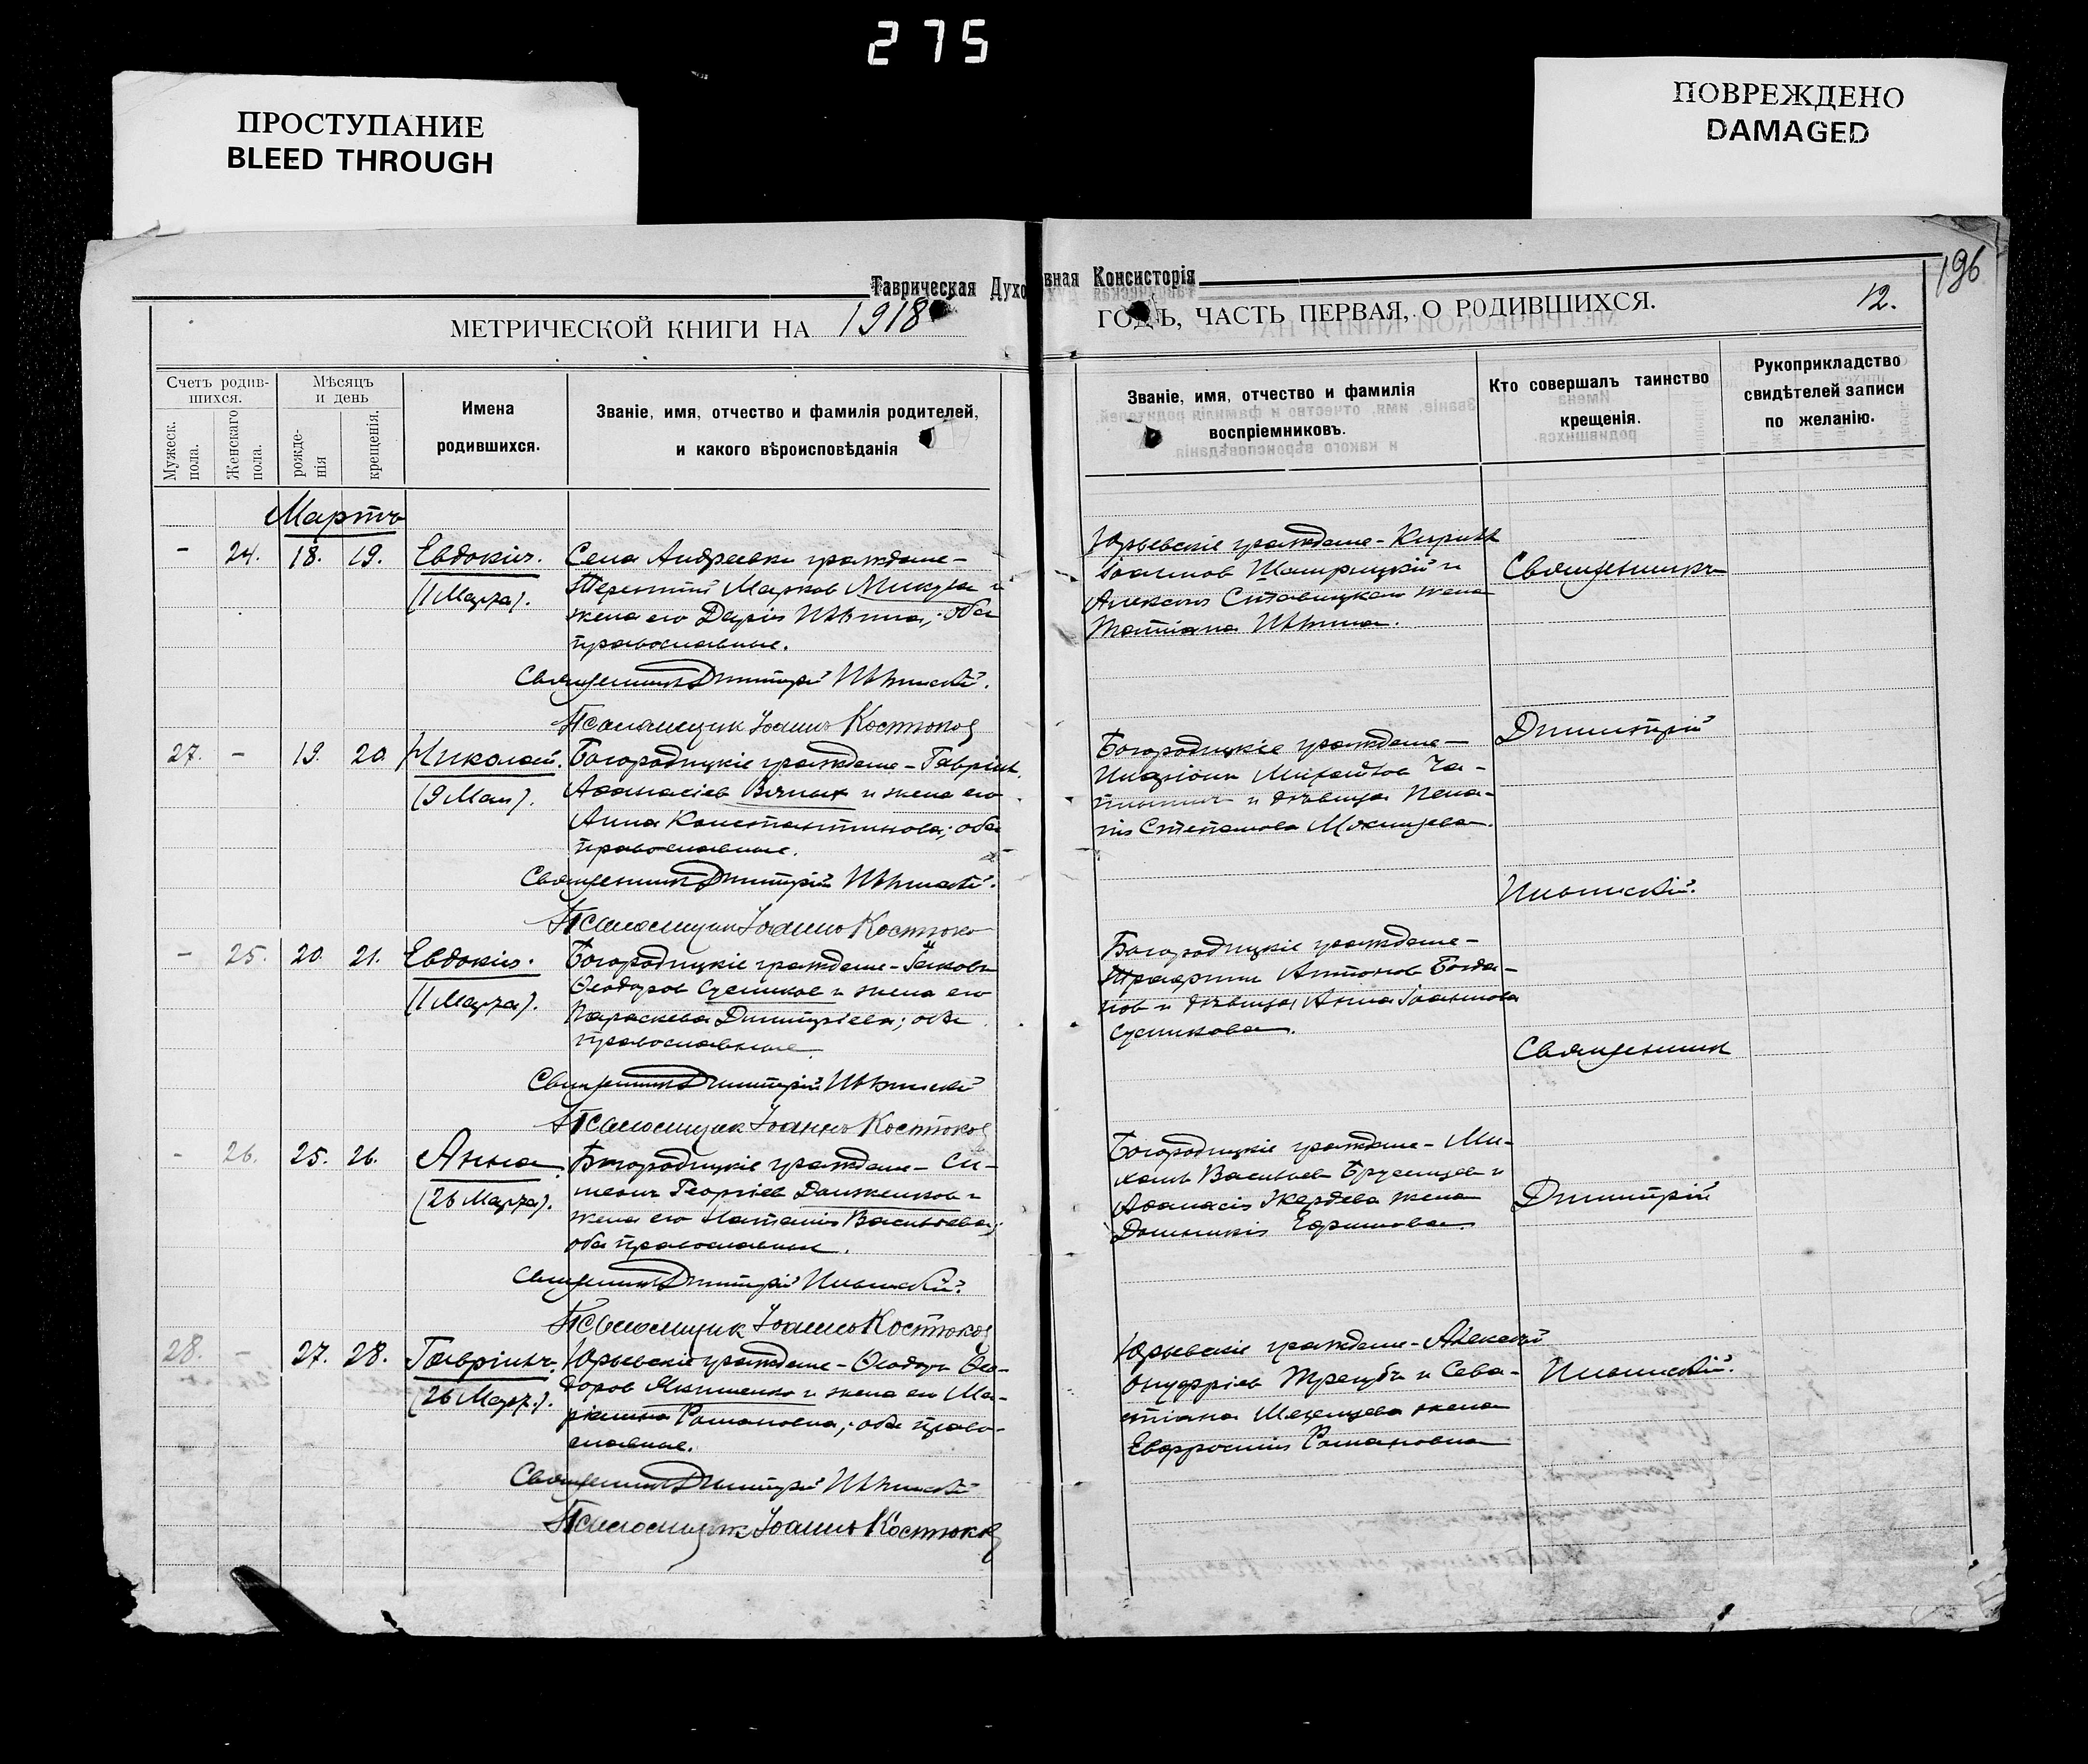 275
ПРОСТУПАНИЕ
BLEED THROUGH
ПОВРЕЖДЕНО
DAMAGED
Таврическая Духовная Консисторія
196
МЕТРИЧЕСКОЙ КНИГИ НА 1918 ГОДЪ, ЧАСТЬ ПЕРВАЯ, О РОДИВШИХСЯ.
12.
Счетъ родив-
шихся.
Мужеск.
пола.
Женскаго
пола.
Мѣсяцъ
и день
рожде-
нія
крещенія.
Имена
родившихся.
Званіе, имя, отчество и фамилія родителей,
и какого вѣроисповѣданія
Званіе, имя, отчество и фамилія
воспріемниковъ.
Кто совершалъ таинство
крещенія.
Рукоприкладство
свидѣтелей записи
по желанію.
Мартъ
- 24. 18. 19. Евдокія.
(1 Марта).
Села Андреевки граждане-
Терентій Марков Микула и
жена его Дарія Ильина; оба
православные.
Священник Димитрій Ильинскій.
Псаломщик Іоаннъ Костюков
Юрьевскіе граждане - Кирилл
Іоаннов и
Алексія жена
Татіана Ильина.
Священникъ
27. - 19. 20. Николай.
(9 Мая).
Богородицкіе граждане - Гавріил
Аѳанасіев и жена его
Анна Константинова; оба
православные.
Священник Димитрій Ильинскій.
Псаломщик Іоаннъ Костюков
Богородицкіе граждане-
Михайлов
и дѣвица Пела-
гія Степанова
Димитрій
Ильинскій.
- 25. 20. 21. Евдокія.
(1 Марта).
Богородицкіе граждане - Іаковъ
Ѳеодоров Сусликов и жена его
Параскева Димитріева; оба
православные.
Священник Димитрій Ильинскій
Псаломщик Іоаннъ Костюков
Богородицкіе граждане-
Трофим Антонов Богда-
нов и дѣвица Анна Іоаннова
Сусликова.
Священник
- 26. 25. 26. Анна
(26 Марта).
Богородицкіе граждане - Си-
меон Георгіев Долженков и
жена его Наталія Васильева;
оба православные.
Священник Димитрій Ильинскій.
Псаломщик Іоаннъ Костюков
Богородицкіе граждане - Ми-
хаил Васильев и
Аѳанасія жена
Домникія Ефимова.
Димитрій
28. - 27. 28. Гавріилъ.
(26 Март.).
Юрьевскіе граждане - Ѳеодор Ѳео-
доров Якименко и жена его Ма-
ріанна Романовна; оба право-
славные.
Священник Димитрій Ильинскій
Псаломщик Іоаннъ Костюков
Юрьевскіе граждане - Алексій
Онуфріев и Сева-
стіана жена
Евфросинія Романовна
Ильинскій.